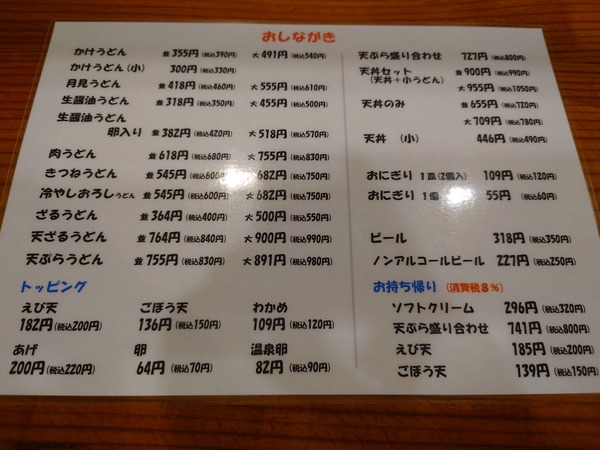 おしながき
かけうどん 並 355円(税込390円) 大 491円(税込540円)
かけうどん(小) 300円(税込330円)
月見うどん 並 418円(税込460円) 大 555円(税込610円)
生醤油うどん 並 318円(税込350円) 大 455円(税込500円)
生醤油うどん
卵入り 並 382円(税込420円) 大 518円(税込570円)
肉うどん 並 618円(税込680円) 大 755円(税込830円)
きつねうどん 並 545円(税込600円) 大 682円(税込750円)
冷やしおろしうどん 並 545円(税込600円) 大 682円(税込750円)
ざるうどん 並 364円(税込400円) 大 500円(税込550円)
天ざるうどん 並 764円(税込840円) 大 900円(税込990円)
天ぷらうどん 並 755円(税込830円) 大 891円(税込980円)
トッピング
えび天 ごぼう天 わかめ
182円(税込200円) 136円(税込150円) 109円(税込120円)
あげ 卵 温泉卵
200円(税込220円) 64円(税込70円) 82円(税込90円)
天ぷら盛り合わせ 727円(税込800円)
天丼セット 並 900円(税込990円)
(天丼+小うどん) 大 955円(税込1050円)
天丼のみ 並 655円(税込720円)
大 709円(税込780円)
天丼 (小) 446円(税込490円)
おにぎり 1皿(2個入) 109円(税込120円)
おにぎり 1個 55円(税込60円)
ビール 318円(税込350円)
ノンアルコールビール 227円(税込250円)
お持ち帰り (消費税8%)
ソフトクリーム 296円(税込320円)
天ぷら盛り合わせ 741円(税込800円)
えび天 185円(税込200円)
ごぼう天 139円(税込150円)